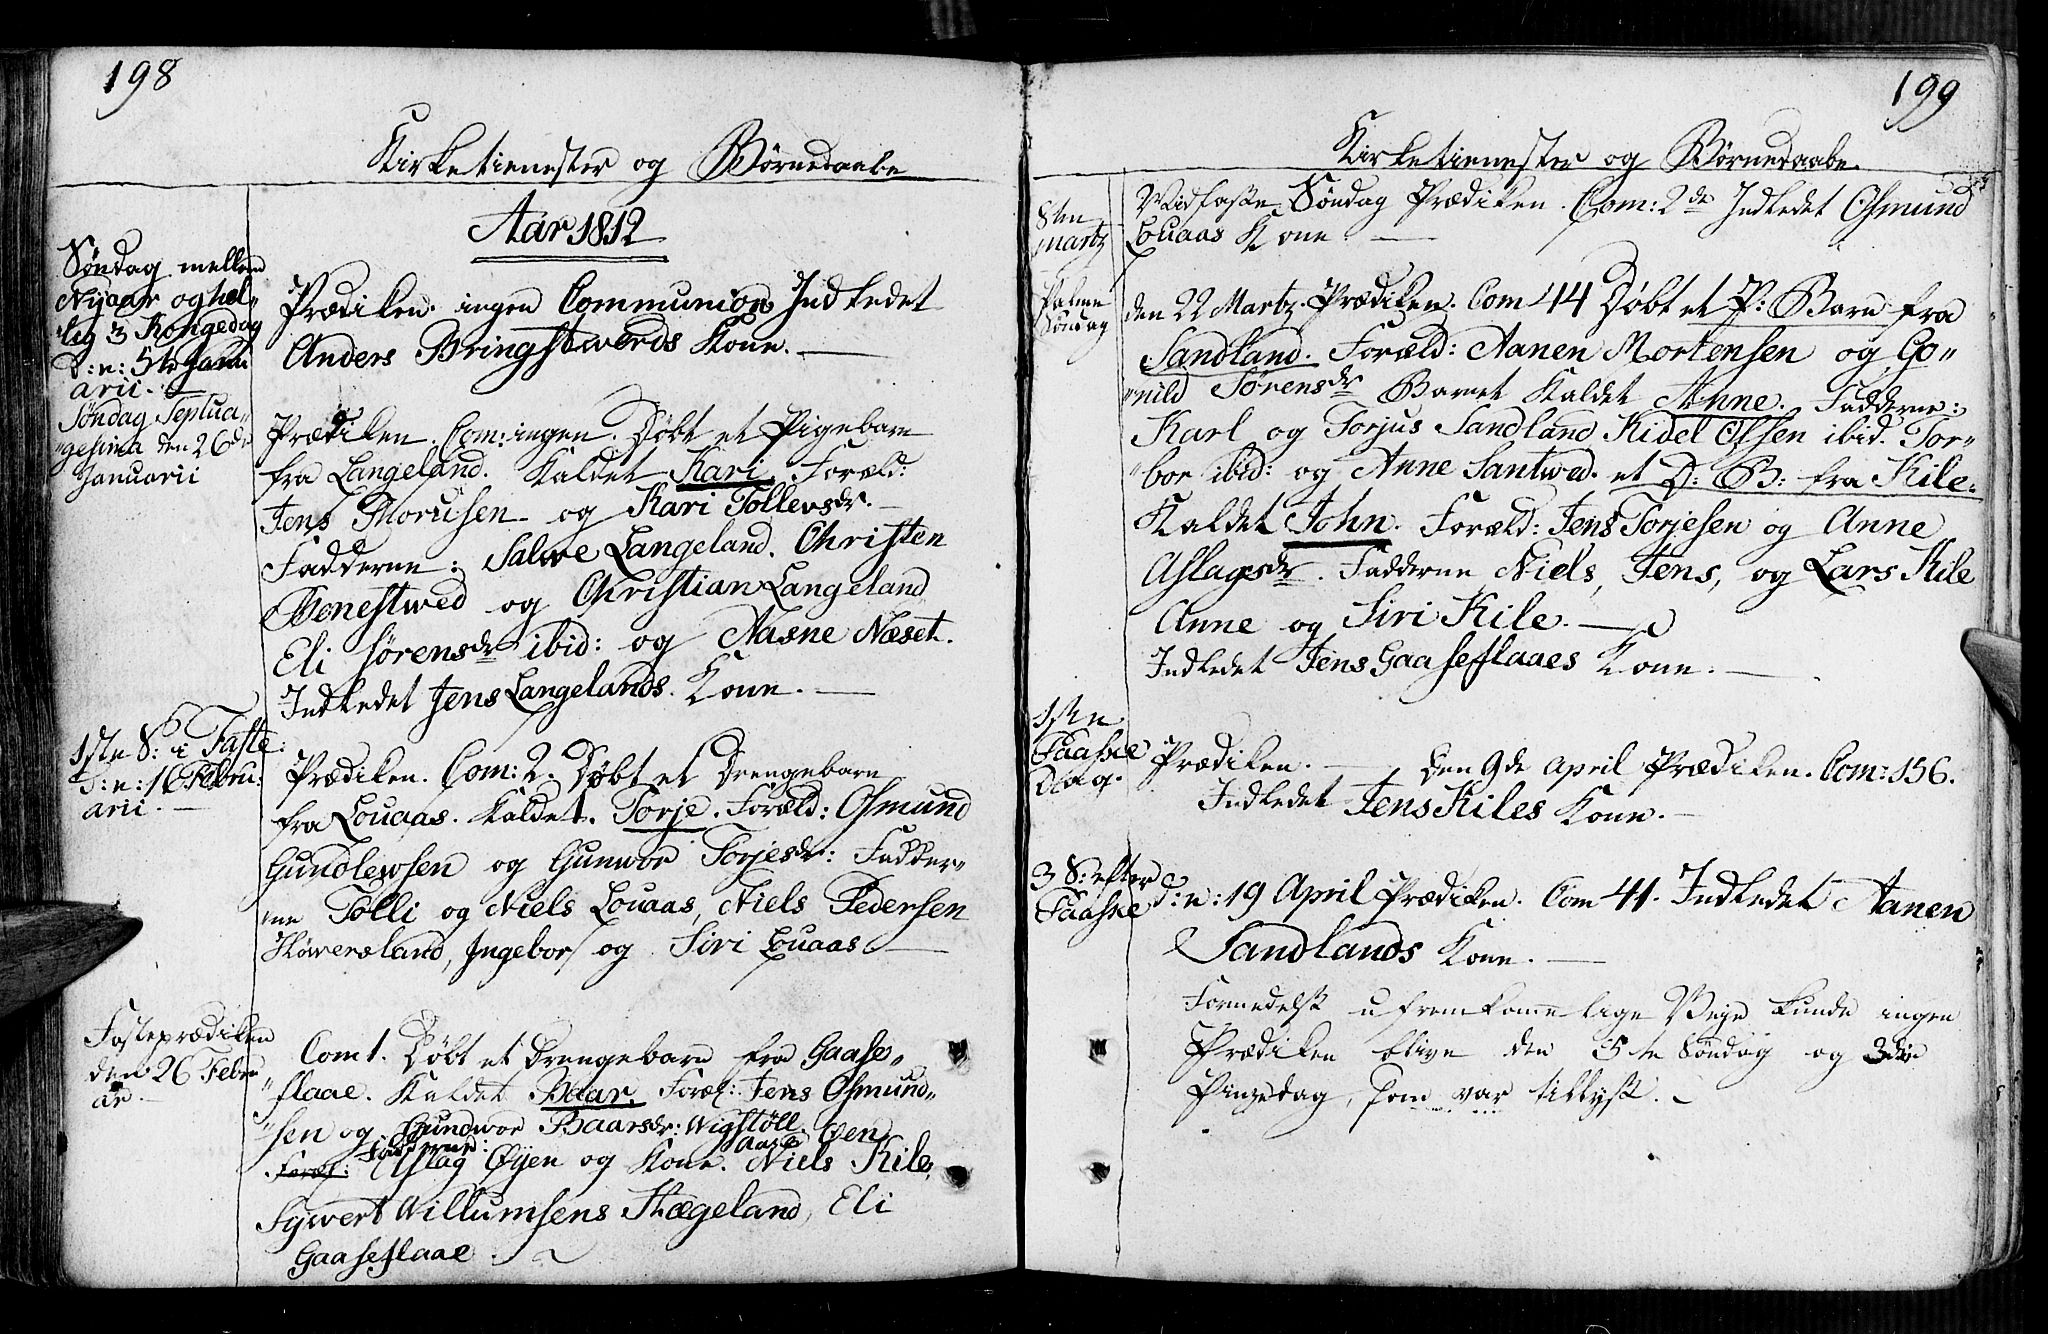 198
Kirketienester og Børnedaabe
Aar 1812
Søndag mellem
Nyaar og hel-
lig 3 Kongedag
d: e: 5te Janu-
arii.
Prædiken. ingen Communion. Indledet
Anders Bringstwerds Kone.
Søndag Septua-
gesima den 26de
Januarii
Prædiken. Com: ingen. Døbt et Pigebarn
fra Langeland. Kaldet Kari. Foræld:
Jens Morusen og Kari Tollevsdr.
Fadderne: Salwe Langeland. Christen
Honestwed og Christian Langeland
Eli Sørensdr ibid: og Aasne Næset.
Indledet Jens Langelands Kone.
1ste S: i Faste
d: e: 16 Febru-
arii.
Prædiken. Com: 2. Døbt et Drengebarn
fra Louaas. Kaldet. Torje. Foræld: Osmund
Gundlewsen og Gunwor Torjesdr: Fadder-
ne Tolli og Niels Louaas, Niels Pedersen
Höwersland, Ingebor og Siri Louaas.
Fasteprædiken
den 26 Febru-
ar.
Com 1. Døbt et Drengebarn fra Gaase-
flaae. Kaldet Baar. Foræl: Jens Osmund-
sen og Gundwor Baarsdr: Wigstöll.
Foræl: Fadderne: Aslag Øyen og Kone. Aase Øen Niels Kile,
Sywert Willumsens Hægeland, Eli
Gaaseflaae.
199
Kirketienester og Børnedaabe.
8ten
Martz
Midfaste Søndag Prædiken. Com: 2de Indledet Osmund
Louaas Kone.
Palme
Søndag
den 22 Martz. Prædiken. Com 44 Døbt et P: Barn fra
Sandland. Foræld: Aanen Mortensen og Go-
nild Sørensdr Barnet Kaldet Anne. Fadderne:
Karl og Torjus Sandland Kidel Olsen ibid. Tor-
bor ibid: og Anne Santwed. et D: B: fra Kile.
Kaldet John. Foræld: Jens Torjesen og Anne
Aslagsdr. Fadderne Niels, Jens, og Lars Kile
Anne og Siri Kile.
Indledet Jens Gaaseflaaes Kone.
1ste
Paaske
Dag.
Prædiken. Den 9de April Prædiken. Com: 156.
Indledet Jens Kiles Kone.
3 S: efter
Paaske
d: e: 19 April Prædiken. Com 41. Indledet Aanen
Sandlands Kone.
Formedelst ufremkommelige Veje kunde ingen
Prædiken blive den 5te Søndag og 3die
Pinzedag, som var tillyst.